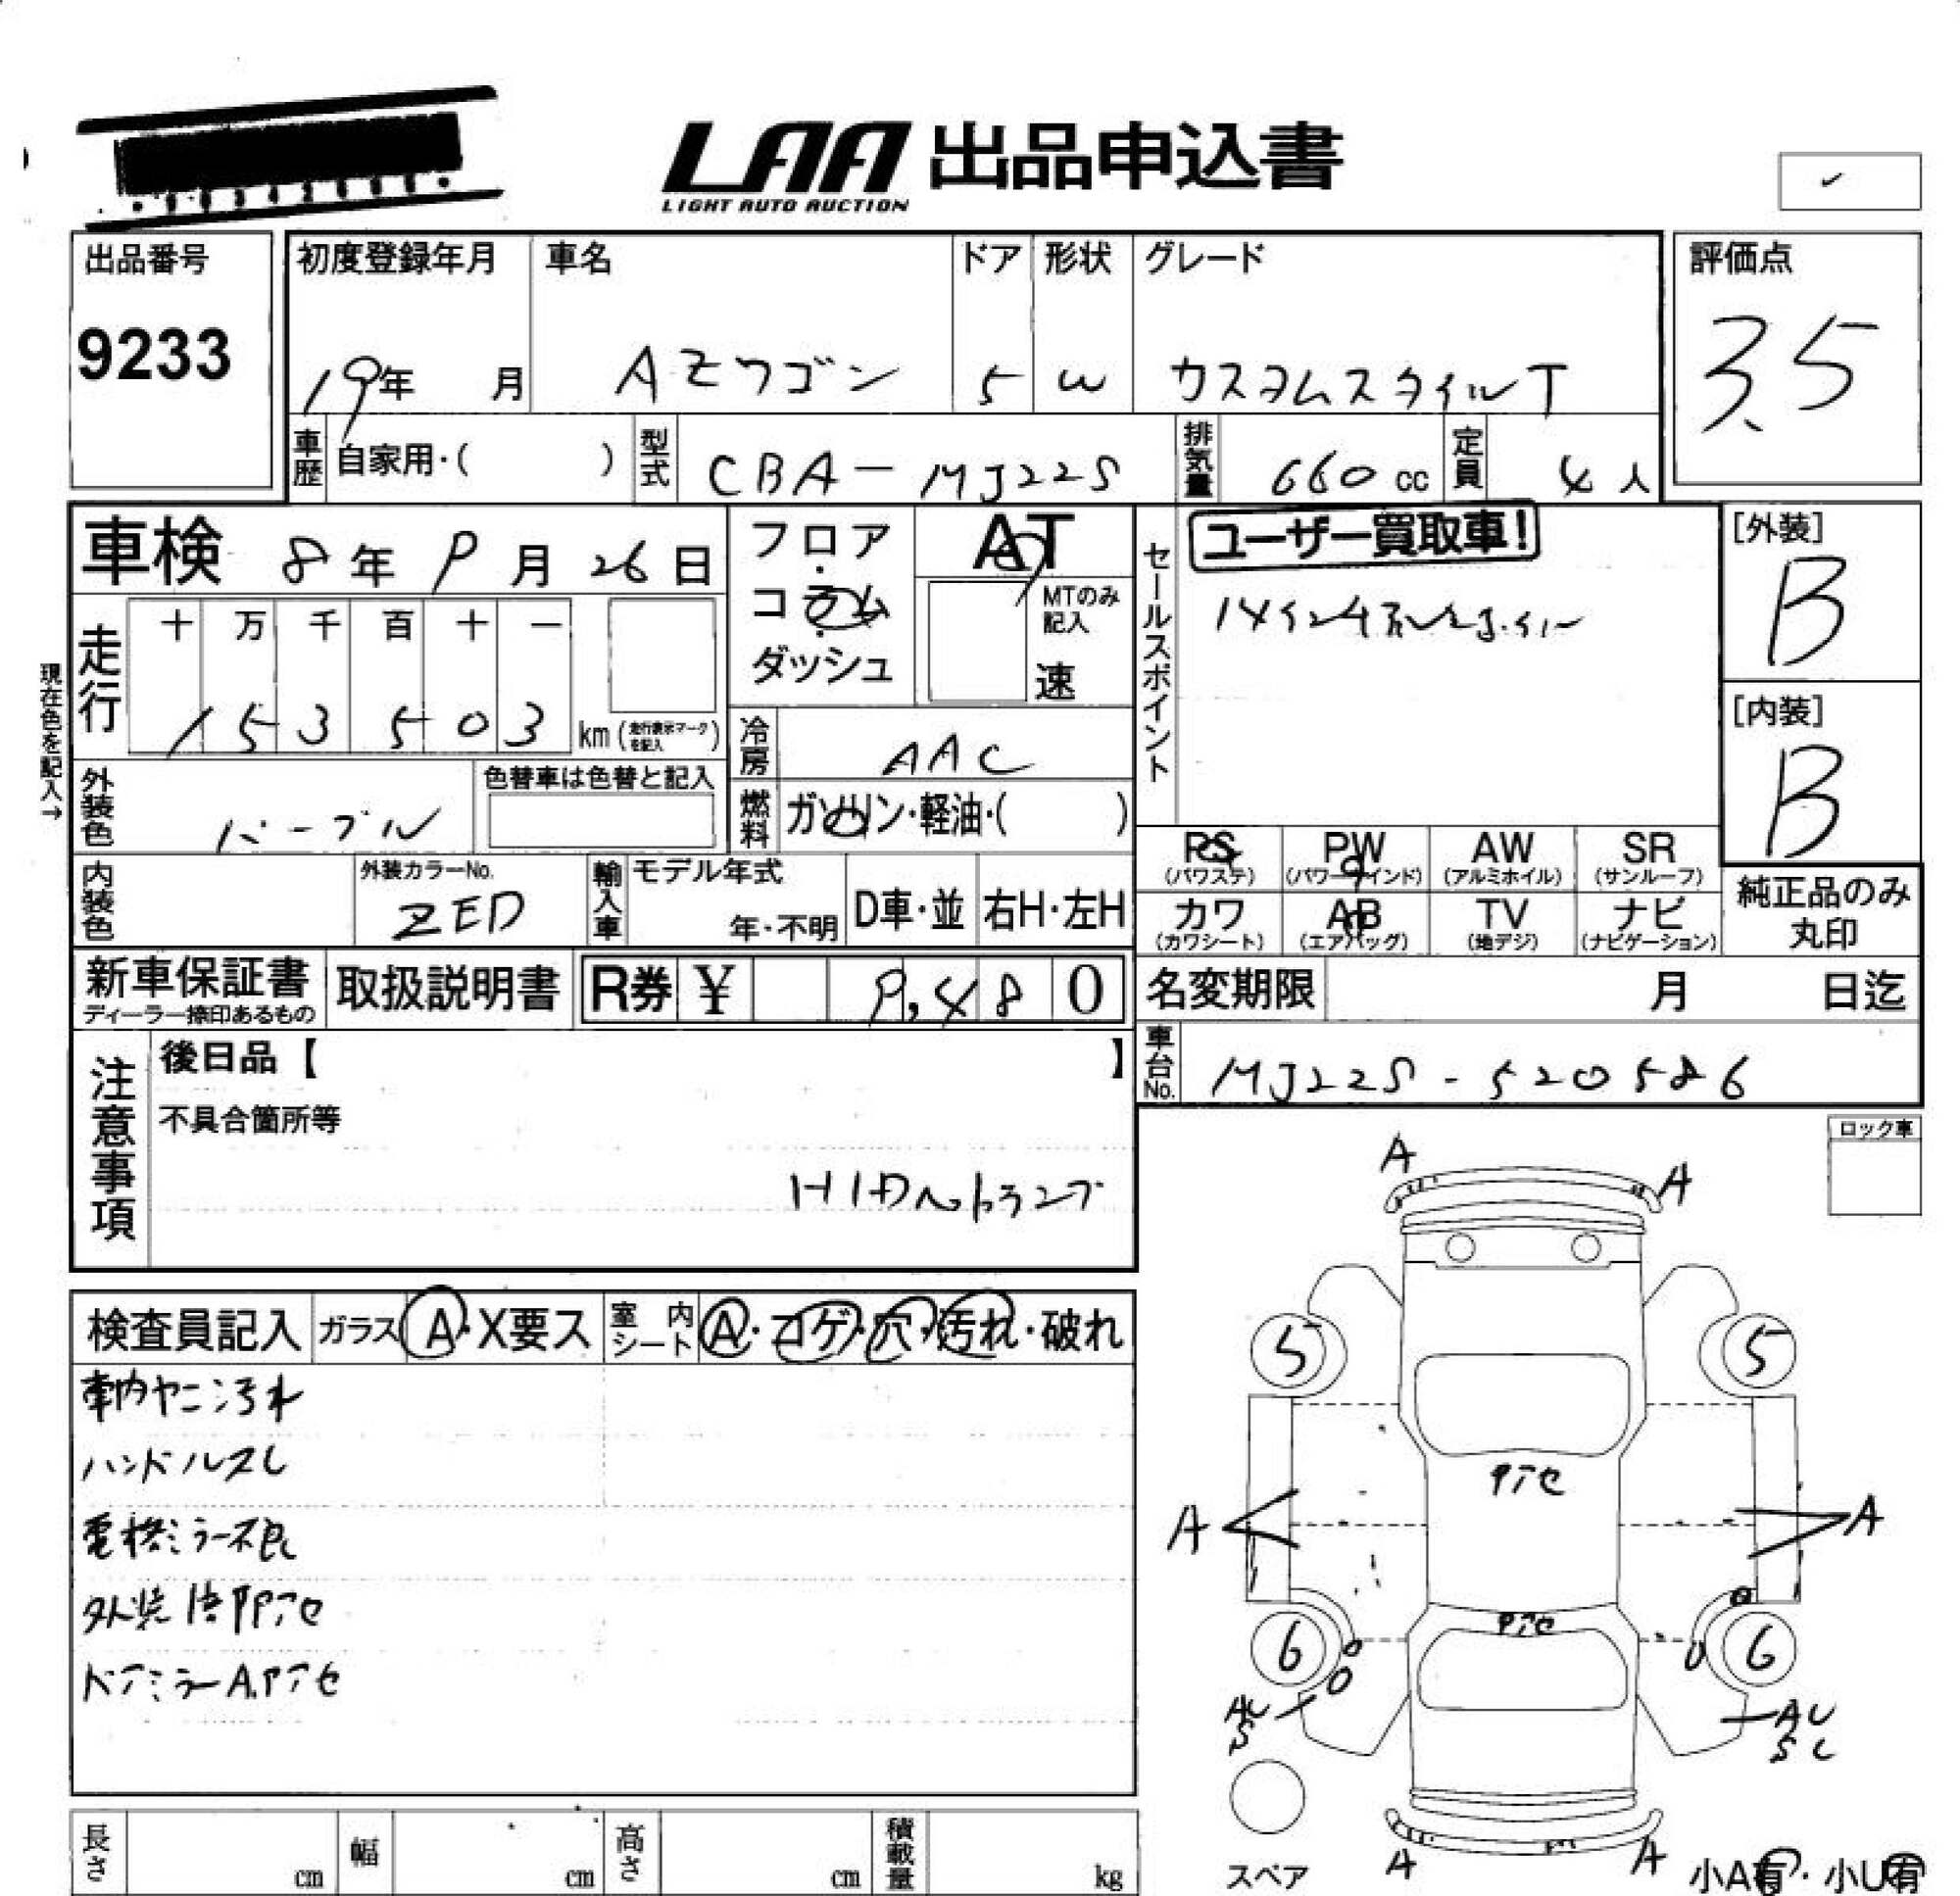 LAA 出品申込書
LIGHT AUTO AUCTION
出品番号
9233
初度登録年月
19年 月
車名
AZワゴン
ドア
5
形状
W
グレード
カスタムスタイルT
評価点
3.5
車歴
自家用・( )
型式
CBA-MJ22S
排気量
660 cc
定員
4 人
車検 8年 9月 26日
フロア
・
コラム
・
ダッシュ
AT
MTのみ
記入
速
セールスポイント
ユーザー買取車!
[外装]
B
[内装]
B
現在色を記入→
走行
十 万 千 百 十 一
1 5 3 5 0 3 km (走行表示マークを記入)
冷房
AAC
外装色
パープル
色替車は色替と記入
燃料
ガソリン・軽油・( )
内装色
外装カラーNo.
ZED
輸入車
モデル年式
年・不明
D車・並
右H・左H
PS (パワステ)
PW (パワーウインド)
AW (アルミホイル)
SR (サンルーフ)
カワ (カワシート)
AB (エアバッグ)
TV (地デジ)
ナビ (ナビゲーション)
純正品のみ
丸印
新車保証書
ディーラー捺印あるもの
取扱説明書
R券 ¥ 9,480
名変期限 月 日迄
車台No.
MJ22S-520586
注意事項
後日品【 】
不具合箇所等
ロック車
検査員記入
ガラス A・X要ス
室内シート A・コゲ・穴・汚れ・破れ
車内ヤニ汚れ
ハンドルスレ
電格ミラー不良
外装 Pアセ
ドアミラーA.Pアセ
A
A
5
5
Pアセ
A
A
Pアセ
6
6
AU
S
AU
S
A
A
スペア
小A有・小U有
長さ cm
幅 cm
高さ cm
積載量 kg